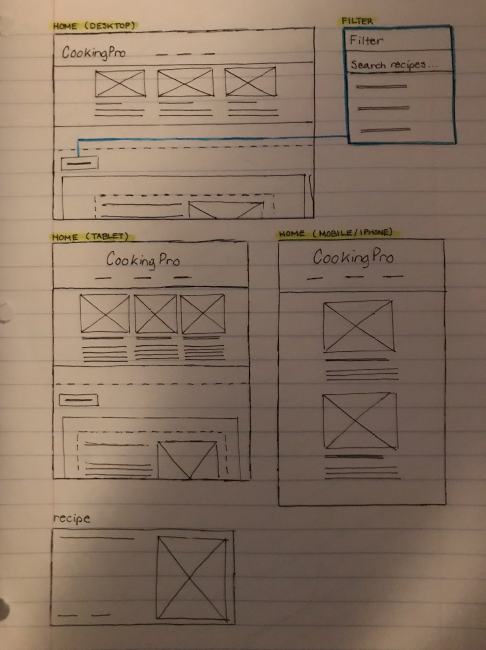 HOME (DESKTOP)
CookingPro
FILTER
Filter
Search recipes...
HOME (TABLET)
CookingPro
HOME (MOBILE/IPHONE)
CookingPro
recipe